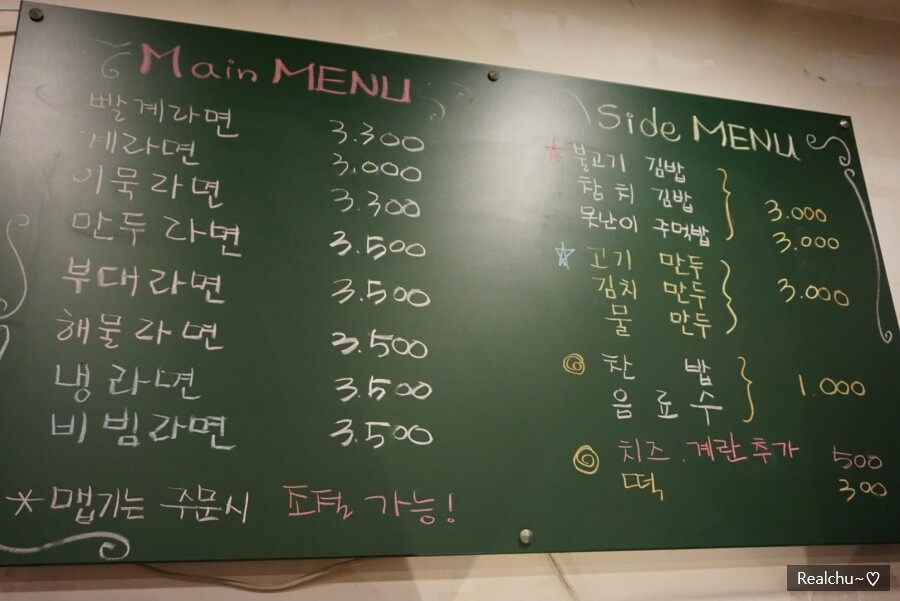 Main MENU
빨계라면 3.300
계라면 3.000
어묵라면 3.300
만두라면 3.500
부대라면 3.500
해물라면 3.500
냉라면 3.500
비빔라면 3.500
* 맵기는 주문시 조절 가능!
Side MENU
불고기 김밥
참치 김밥 3.000
못난이 주먹밥 3.000
고기 만두
김치 만두 3.000
물 만두
찬 밥 1.000
음료수
치즈.계란추가 500
떡 300
Realchu~♡